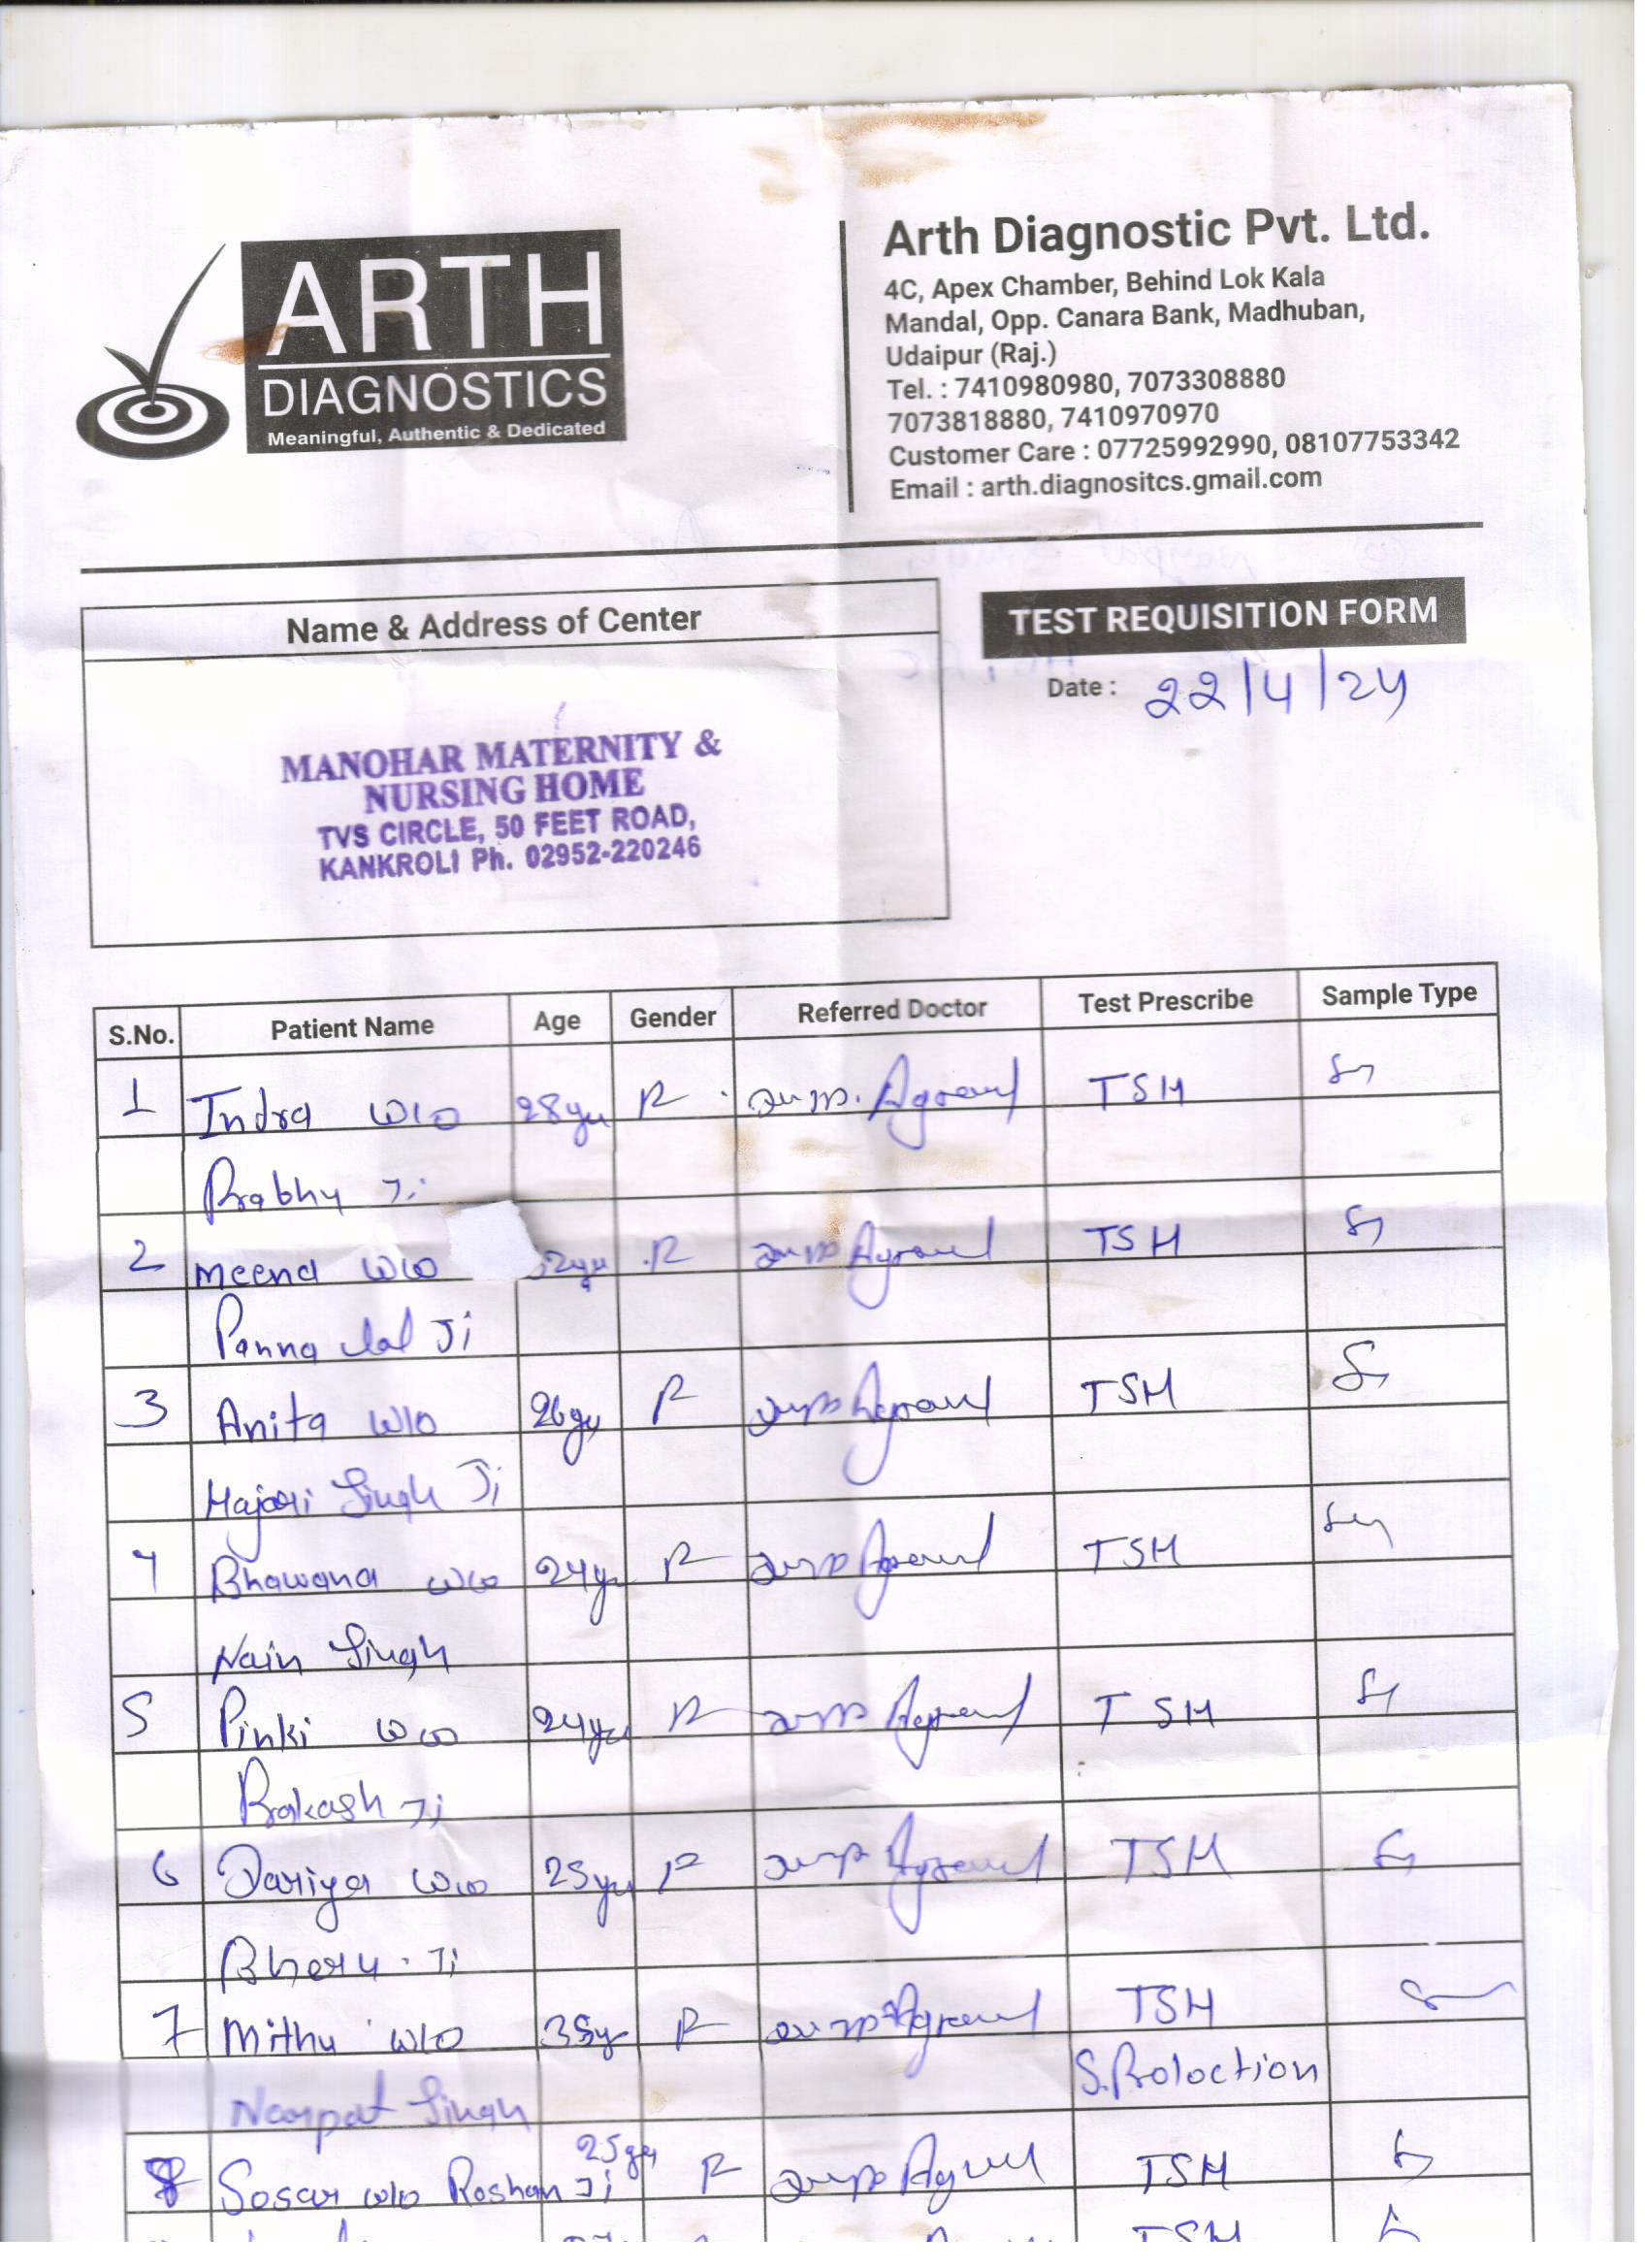 ARTH
DIAGNOSTICS
Meaningful, Authentic & Dedicated
Arth Diagnostic Pvt. Ltd.
4C, Apex Chamber, Behind Lok Kala
Mandal, Opp. Canara Bank, Madhuban,
Udaipur (Raj.)
Tel. : 7410980980, 7073308880
7073818880, 7410970970
Customer Care : 07725992990, 08107753342
Email : arth.diagnositcs.gmail.com
Name & Address of Center
TEST REQUISITION FORM
Date : 22/4/24
MANOHAR MATERNITY &
NURSING HOME
TVS CIRCLE, 50 FEET ROAD,
KANKROLI Ph. 02952-220246
S.No. Patient Name Age Gender Referred Doctor Test Prescribe Sample Type
1 Indra w/o 28yr F Agrawal TSH
Prabhu Ji
2 Meena w/o F Agrawal TSH
Panna Lal Ji
3 Anita w/o 26yr F Agrawal TSH
Hajari Singh Ji
4 Bhawana w/o 24yr F Agrawal TSH
Nain Singh
5 Pinki w/o 24yr F Agrawal TSH
Prakash Ji
6 Dariya w/o 25yr F Agrawal TSH
Bheru Ji
7 Mithu w/o 35yr F Agrawal TSH
S. Proloction
Narpat Singh
8 Sosar w/o Roshan Ji 25yr F Agrawal TSH
TSH